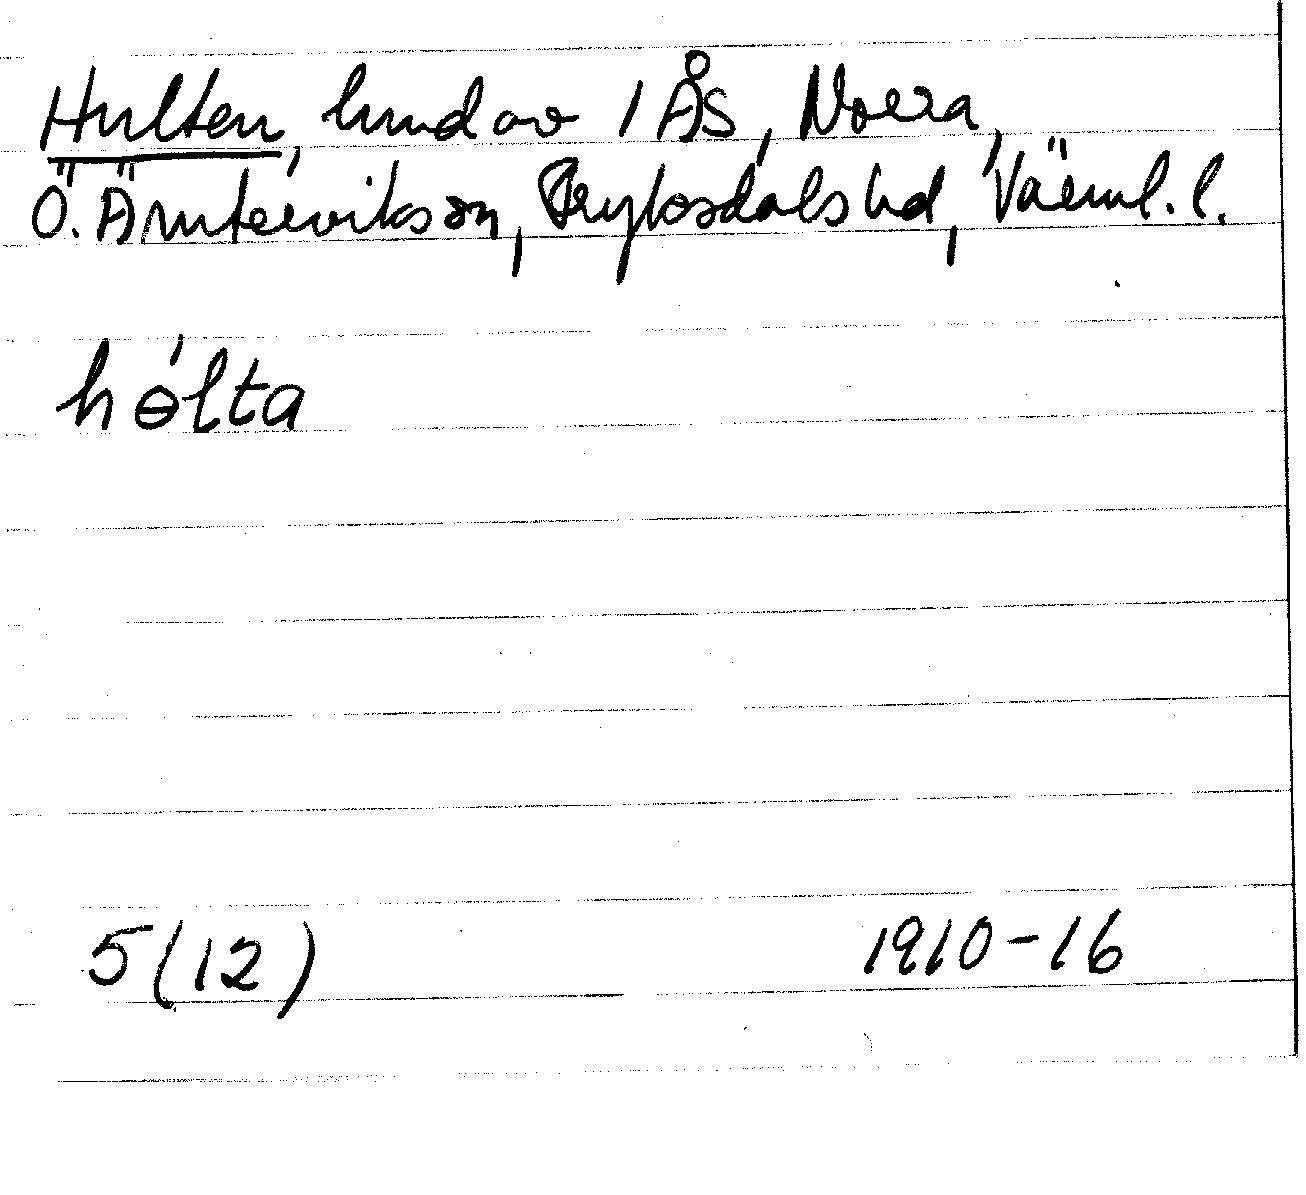 Hulten, hmd av 1 ÅS, Norra,
Ö. Ämterviks sn, Fryksdals hd, Värml. l.
hɵ́lta
5(12) 1910-16